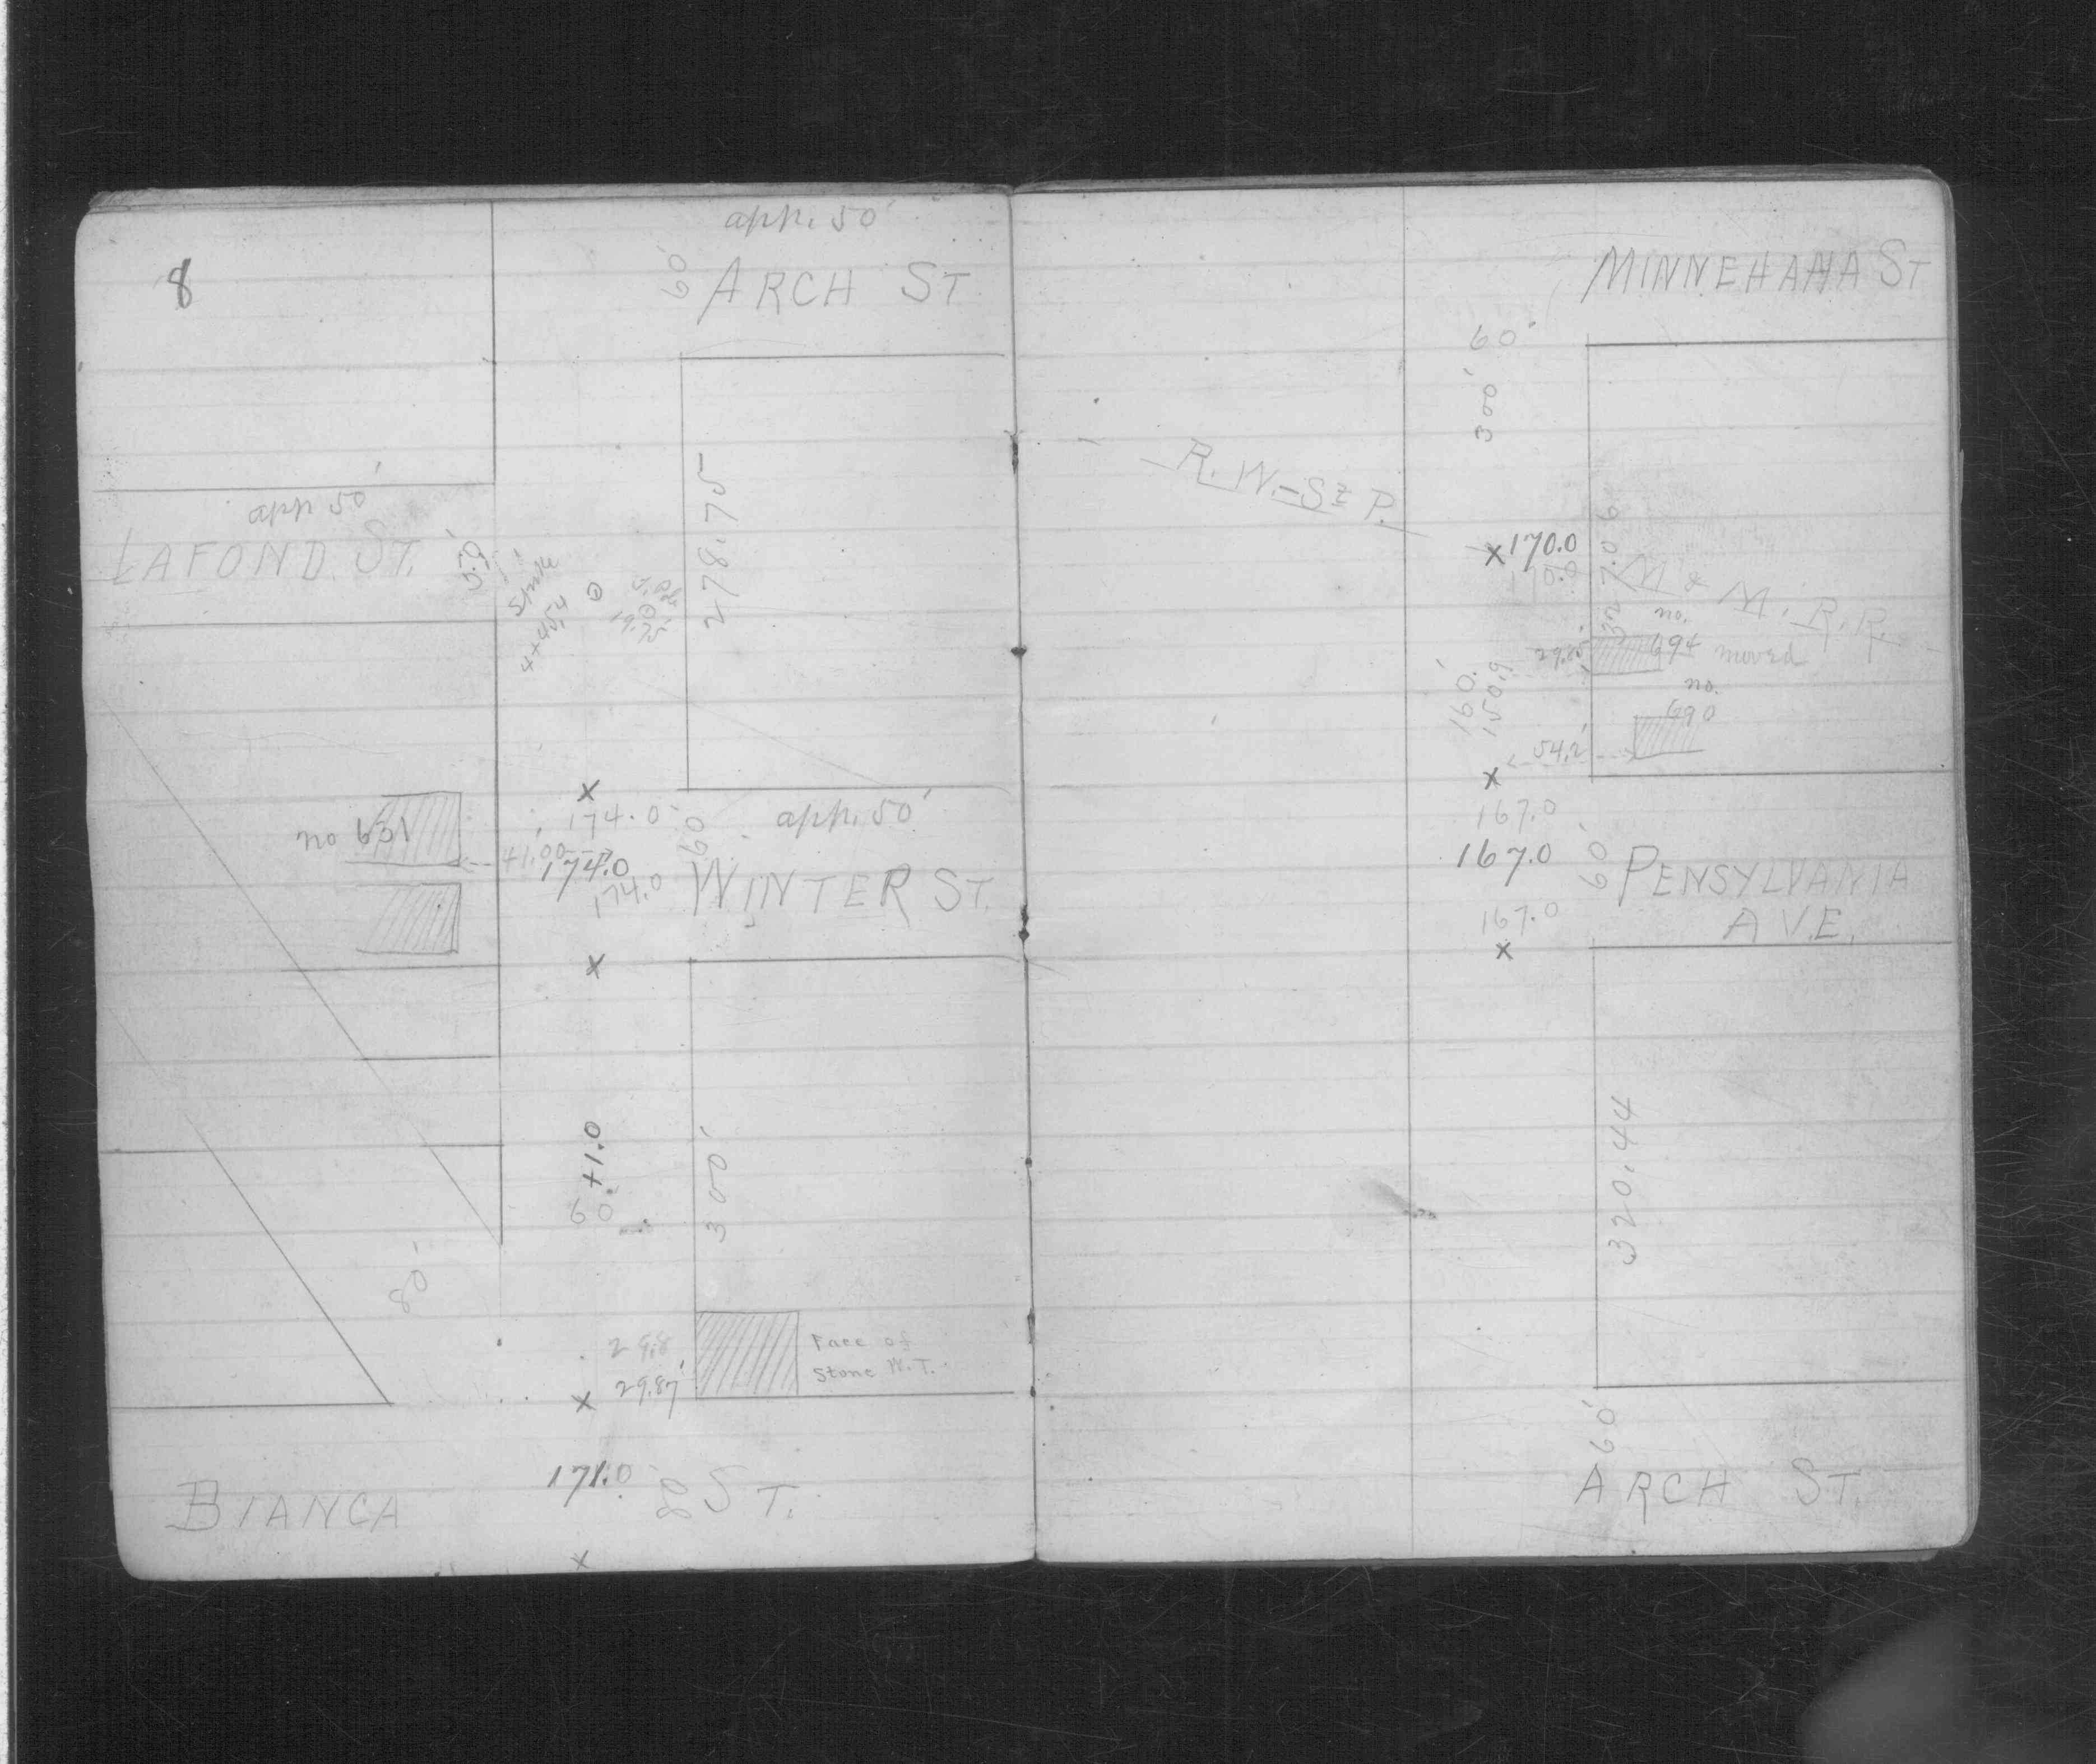 8
app. 50'
60' ARCH ST
app 50'
LAFOND. ST.
Spike
4+45.4
19.75
278.75
174.0
60'
app. 50'
no 691
41.00
174.0
174.0
WINTER ST.
+1.0
60.
300'
80'
29.8
29.87'
Face of
Stone W.T.
BIANCA
171.0
80
ST.
MINNEHAHA ST
60'
300'
R.W.-St P.
M & M. R.R.
170.0
170.0
327.06
no.
694 moved
29.80'
no.
690
160.'
150.9
54.2'
167.0
167.0
60'
PENSYLVANIA
AVE.
167.0
320.44
60'
ARCH ST.